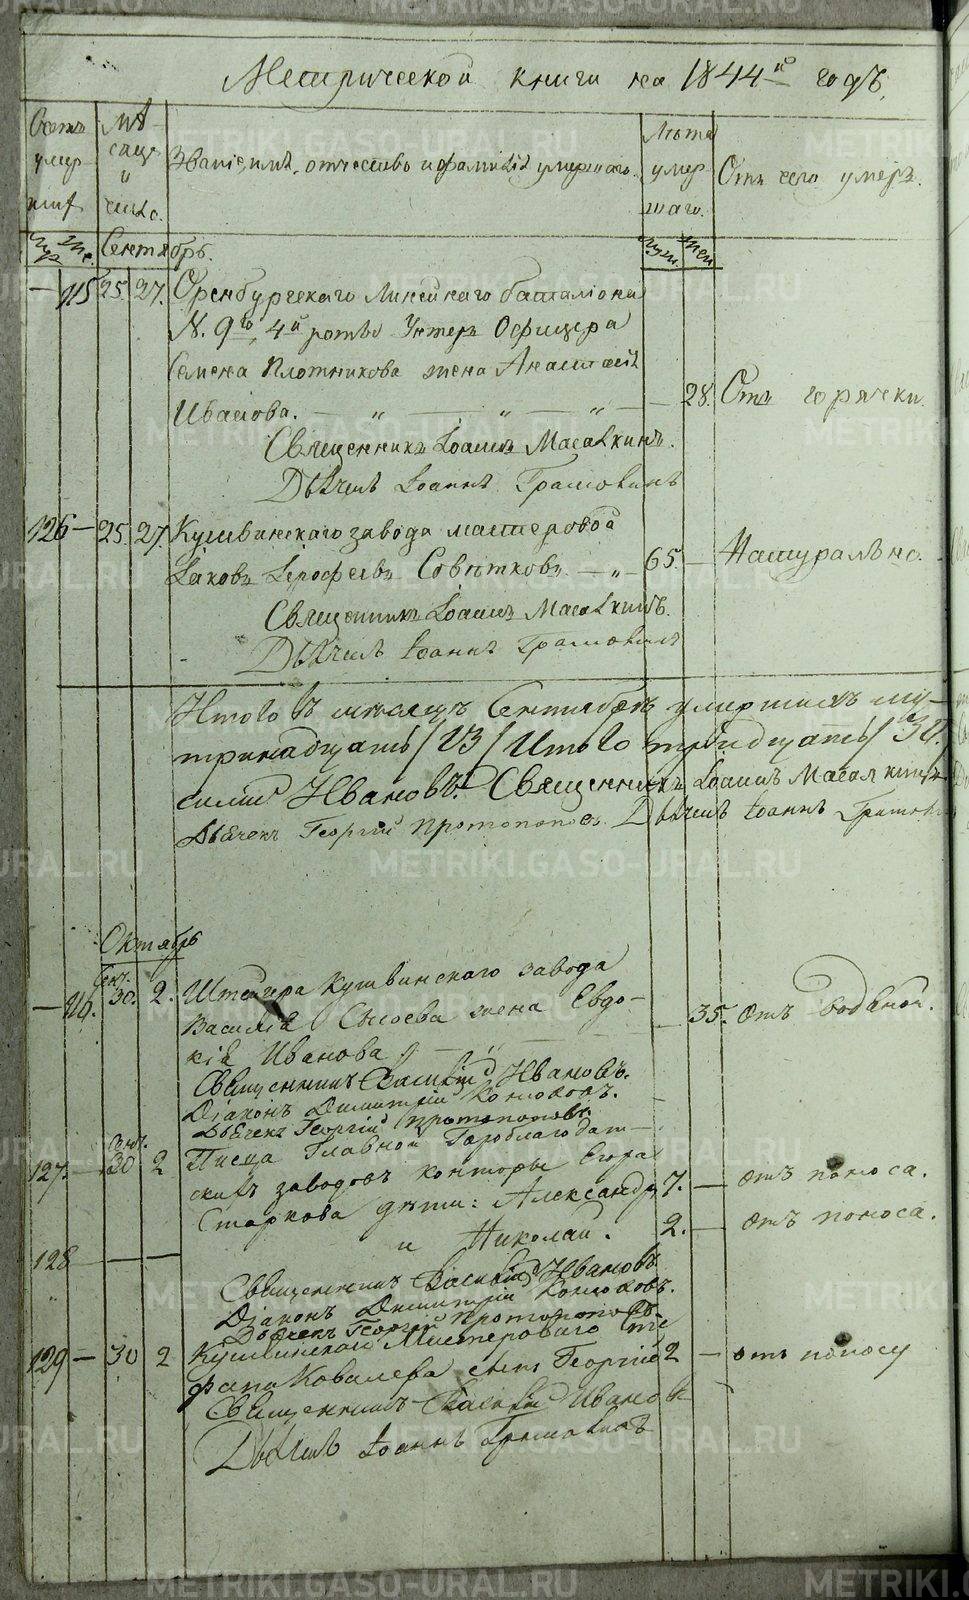 Метрической книги на 1844й годъ.
Счетъ умершихъ
Мѣсяцъ и число.
Званіе, имя, отчество и фамилія умершаго.
Лѣта умершаго.
Отъ чего умеръ.
муж. же.
Сентябрь.
муж. жен
— 115 25. 27. Оренбургскаго Линейнаго баталіона
N. 9го, 4й роты Унтеръ Офицера
Семена Плотникова жена Анастасія
Иванова. — „ — „ — „ — 28. Отъ горячки.
Священникъ Іоаннъ Масалкинъ.
Дьячекъ Іоаннъ
126 — 25. 27. Кушвинскаго завода мастеровой
Іаковъ Іерофеевъ — „ — 65. — Натурально.
Священникъ Іоаннъ Масалкинъ.
Дьячекъ Іоаннъ
Итого въ мѣсяцѣ Сентябрѣ умершихъ му-
тринадцать /13/ Итого тридцать / 30.
силій Ивановъ. Священникъ Іоаннъ Масалкинъ
Дьячекъ Георгій Протопоповъ. Дьячекъ Іоаннъ
Октябрь
Сент.
— 116. 30. 2. Штейгера Кушвинскаго завода
Василія Сысоева жена Евдо-
кія Иванова — „ — 35. отъ водяной.
Священникъ Василій Ивановъ.
Діаконъ Димитрій Конюховъ.
Дьячекъ Георгій Протопоповъ.
Сент.
127. — 30 2 Писца Главной Гороблагодат-
скихъ заводовъ конторы Егора
Старкова дѣти: Александръ 7. — отъ поноса.
128 — — и Николай. 2. — отъ поноса.
Священникъ Василій Ивановъ
Діаконъ Димитрій Конюховъ.
Дьячекъ Георгій Протопоповъ.
129 — 30 2 Кушвинскаго Мастероваго Сте
фана Ковалева сынъ Георгій 2 — отъ поносу
Священникъ Василій Ивановъ
Дьячекъ Іоаннъ
METRIKI.GASO-URAL.RU